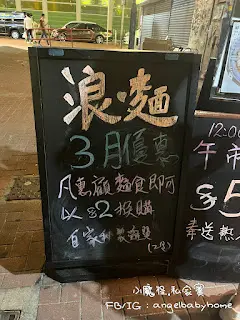 浪‧麵
3月優惠
凡惠顧麵食即可
以$2換購
自家製
12:0
午市
$5
奉送熱
小魔怪.私家寶
FB/IG : angelbabyhome